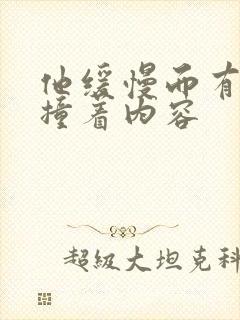 他缓慢而有
撞着内容
超级大坦克科